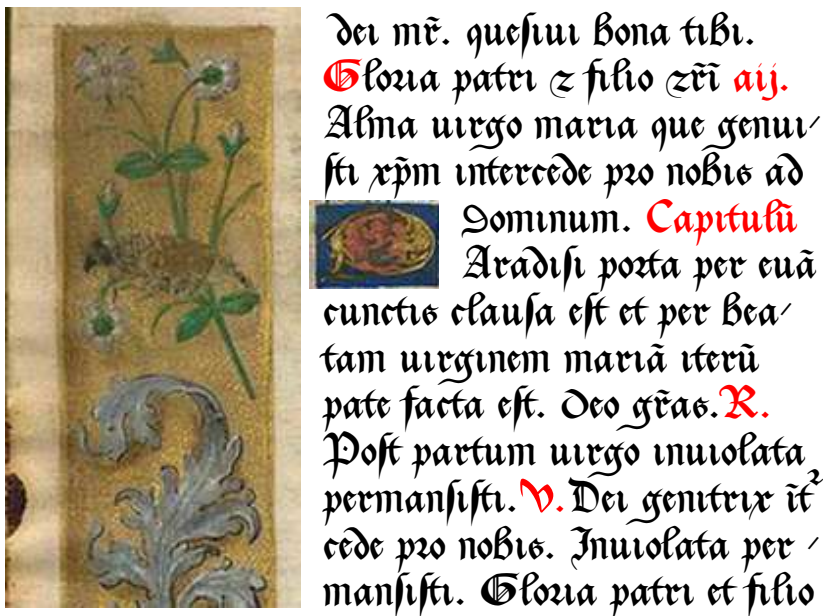 dei mr̃. quesiui bona tibi.
Gloria patri ⁊ filio ⁊r̃ĩ aij.
Alma uirgo maria que genui-
sti xp̃m intercede pro nobis ad
dominum. Capitulũ
Aradisi porta per euã
cunctis clausa est et per bea-
tam uirginem mariã iterũ
pate facta est. deo gr̃as. R.
Post partum uirgo inuiolata
permansisti. V. Dei genitrix ĩt᷑
cede pro nobis. Inuiolata per -
mansisti. Gloria patri et filio